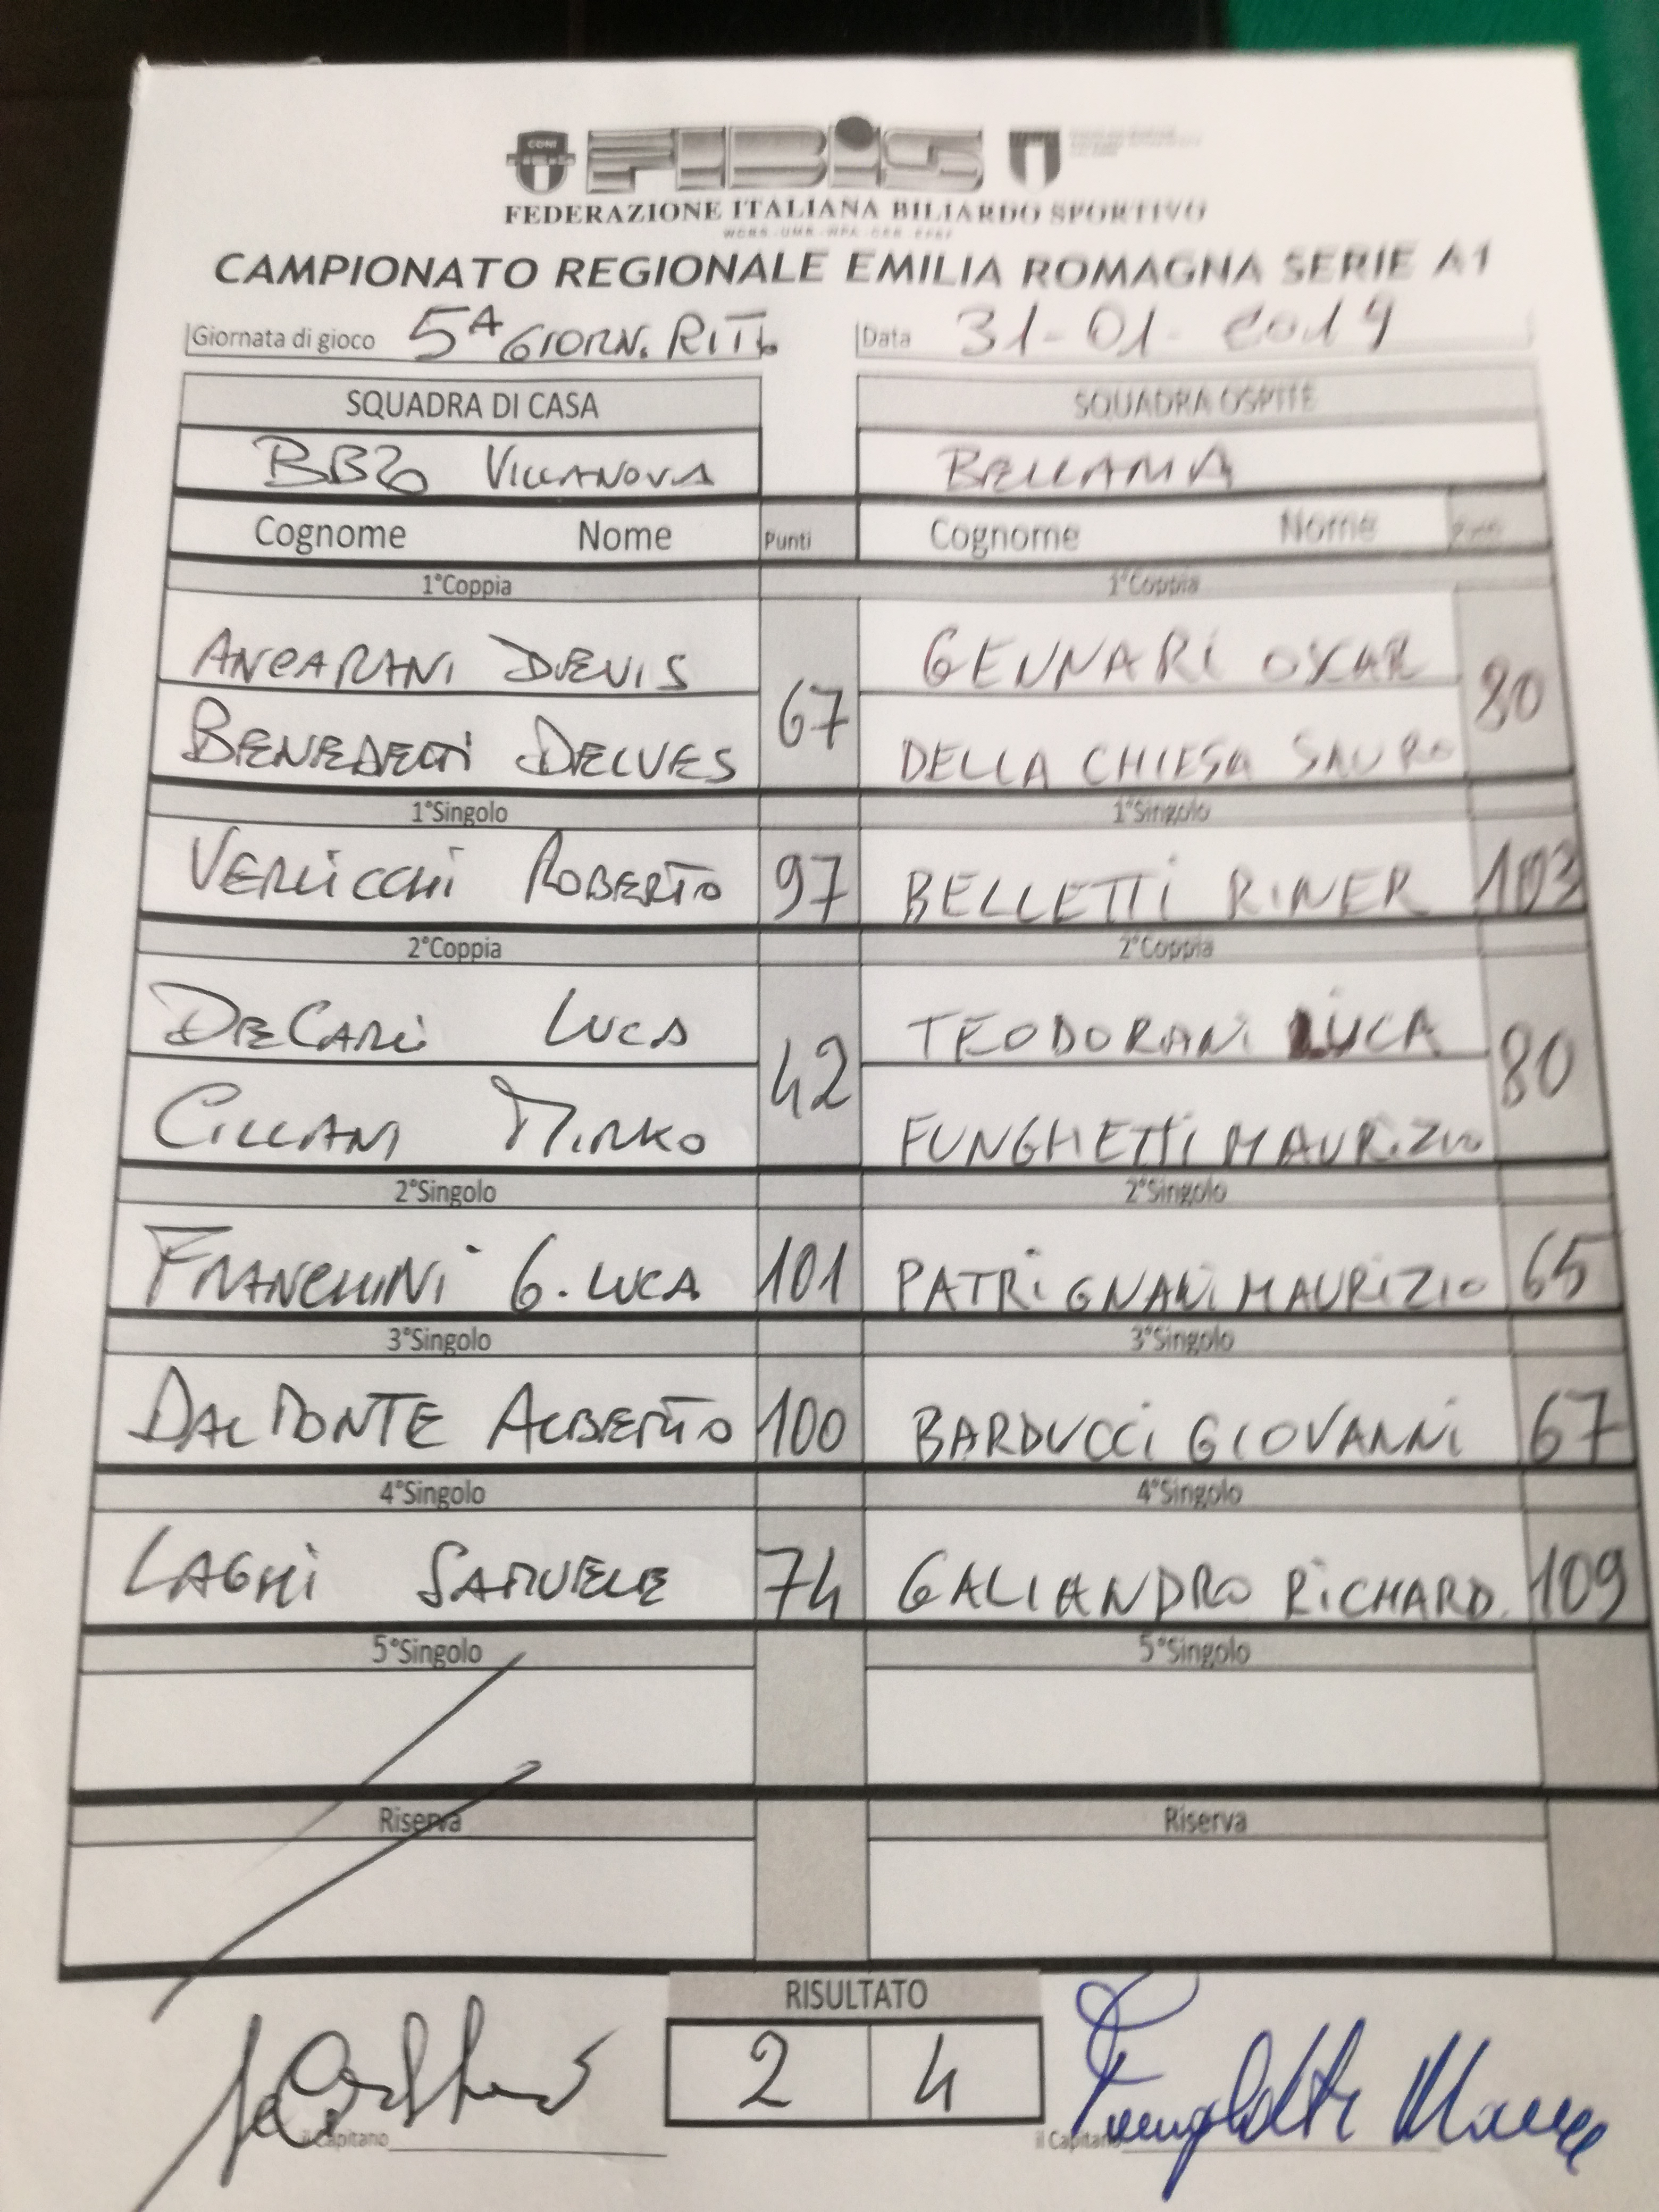 CONI
FIBiS
FEDERAZIONE ITALIANA BILIARDO SPORTIVO
CAMPIONATO REGIONALE EMILIA ROMAGNA SERIE A1
Giornata di gioco 5A GIORN. RIT. Data 31-01-2019
SQUADRA DI CASA SQUADRA OSPITE
VILLANOVA BELLAMIA
Cognome Nome Punti Cognome Nome Punti
1°Coppia 1°Coppia
ANCARANI DEVIS 67 GENNARI OSCAR 80
BENEDETTI DELVES DELLA CHIESA SAURO
1°Singolo 1°Singolo
VERLICCHI ROBERTO 97 BELLETTI RINER 103
2°Coppia 2°Coppia
DE CARLI LUCA 42 TEODORANI LUCA 80
CILLANI MIRKO FUNGHETTI MAURIZIO
2°Singolo 2°Singolo
FRANCHINI G. LUCA 101 PATRIGNANI MAURIZIO 65
3°Singolo 3°Singolo
DAL MONTE ALBERTO 100 BARDUCCI GIOVANNI 67
4°Singolo 4°Singolo
LAGHI SAMUELE 74 GALIANDRO RICHARD. 109
5°Singolo 5°Singolo
Riserva Riserva
RISULTATO
2 4
il Capitano il Capitano